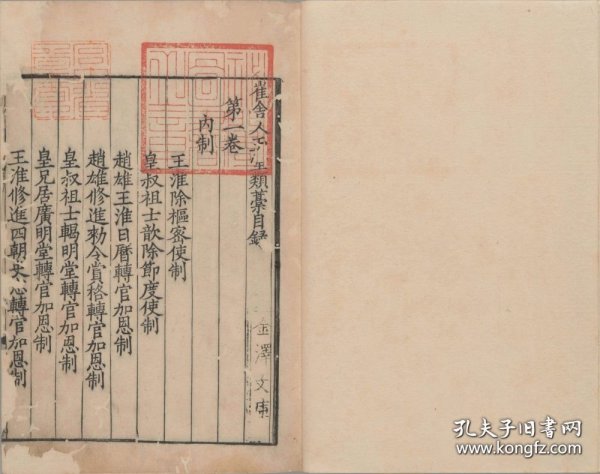 崔舍人玉堂類藁目錄
第一卷
內制
王淮除樞密使制
皇叔祖士歆除節度使制
趙雄王淮日曆轉官加恩制
趙雄修進勑令賞格轉官加恩制
皇叔祖士輵明堂轉官加恩制
皇兄居廣明堂轉官加恩制
王淮修進四朝史志轉官加恩制
金澤文庫
孔夫子旧书网
www.kongfz.com